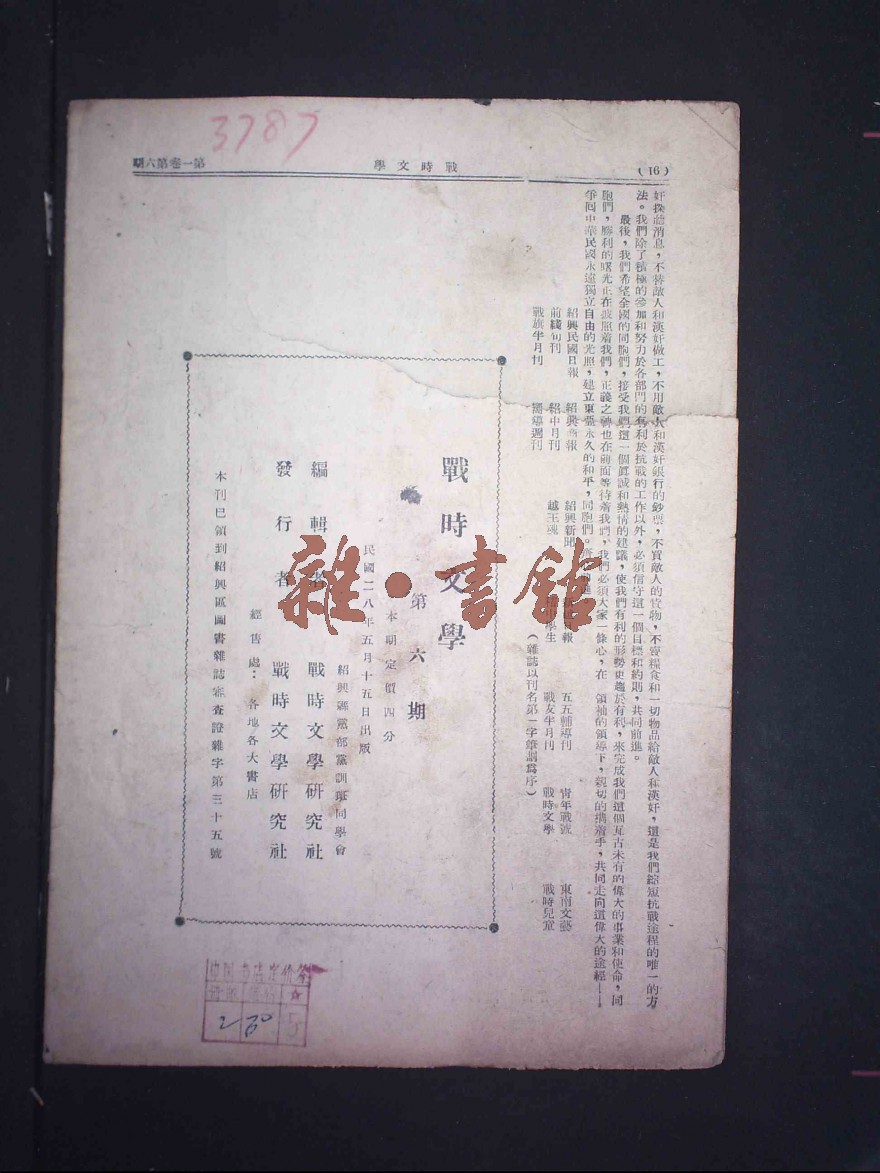 3787
(16)
戰時文學
第一卷第六期
奸探聽消息，不替敵人和漢奸做工，不用敵人和漢奸銀行的鈔票，不買敵人的貨物，不賣糧食和一切物品給敵人和漢奸，這是我們縮短抗戰途程的唯一的方
法。我們除了積極的參加和努力於各部門的有利於抗戰的工作以外，必須信守這一個目標和約則，共同前進。
最後，我們希望全國的同胞們，接受我們這一個眞誠和熱情的建議，使我們有利的形勢更趨於有利，來完成我們這個亙古未有的偉大的事業和使命，同
胞們，勝利的曙光正在披照着我們，正義之神也在前面等待着我們，我們必須大家一條心，在 領袖的領導下，親切的携着手，共同走向這偉大的途經——
爭回中華民國永遠獨立自由的光照，建立東亞永久的和平，同胞們。
紹興民國日報 紹興新報 紹興新聞 日報 五五輔導刊 青年戰號 東南文藝
前綫旬刊 紹中月刊 越王魂 學生 戰友半月刊 戰時文學 戰時兒童
戰旗半月刊 週刊
（雜誌以刊名第一字筆劃爲序）
戰時文學
第六期
本期定價四分
民國二八年五月十五日出版
紹興縣黨部黨訓班同學會
編輯者 戰時文學研究社
發行者 戰時文學研究社
經售處：各地各大書店
本刊已領到紹興區圖書雜誌審查證雜字第三十五號
雜·書館
5